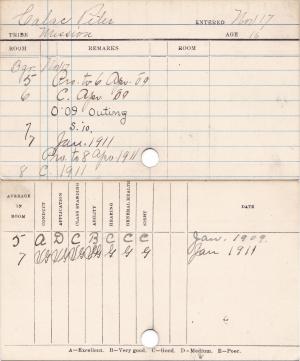 Calac Peter ENTERED Nov 17
TRIBE Mission AGE 16
ROOM REMARKS ROOM
5 Pro. to 6 Apr. 09
6 C. Apr. '09
0'09 Outing
7 S.'10,
7 Jan. 1911
Pro. to 8 Apr. 1911
8 C. 1911
AVERAGE IN ROOM CONDUCT APPLICATION CLASS STANDING ABILITY HEARING GENERAL HEALTH SIGHT DATE
5 A D C B C C C Jan. 1909.
7 VG VG VG VG G G G Jan 1911
A—Excellent. B—Very good. C—Good. D—Medium. E—Poor.